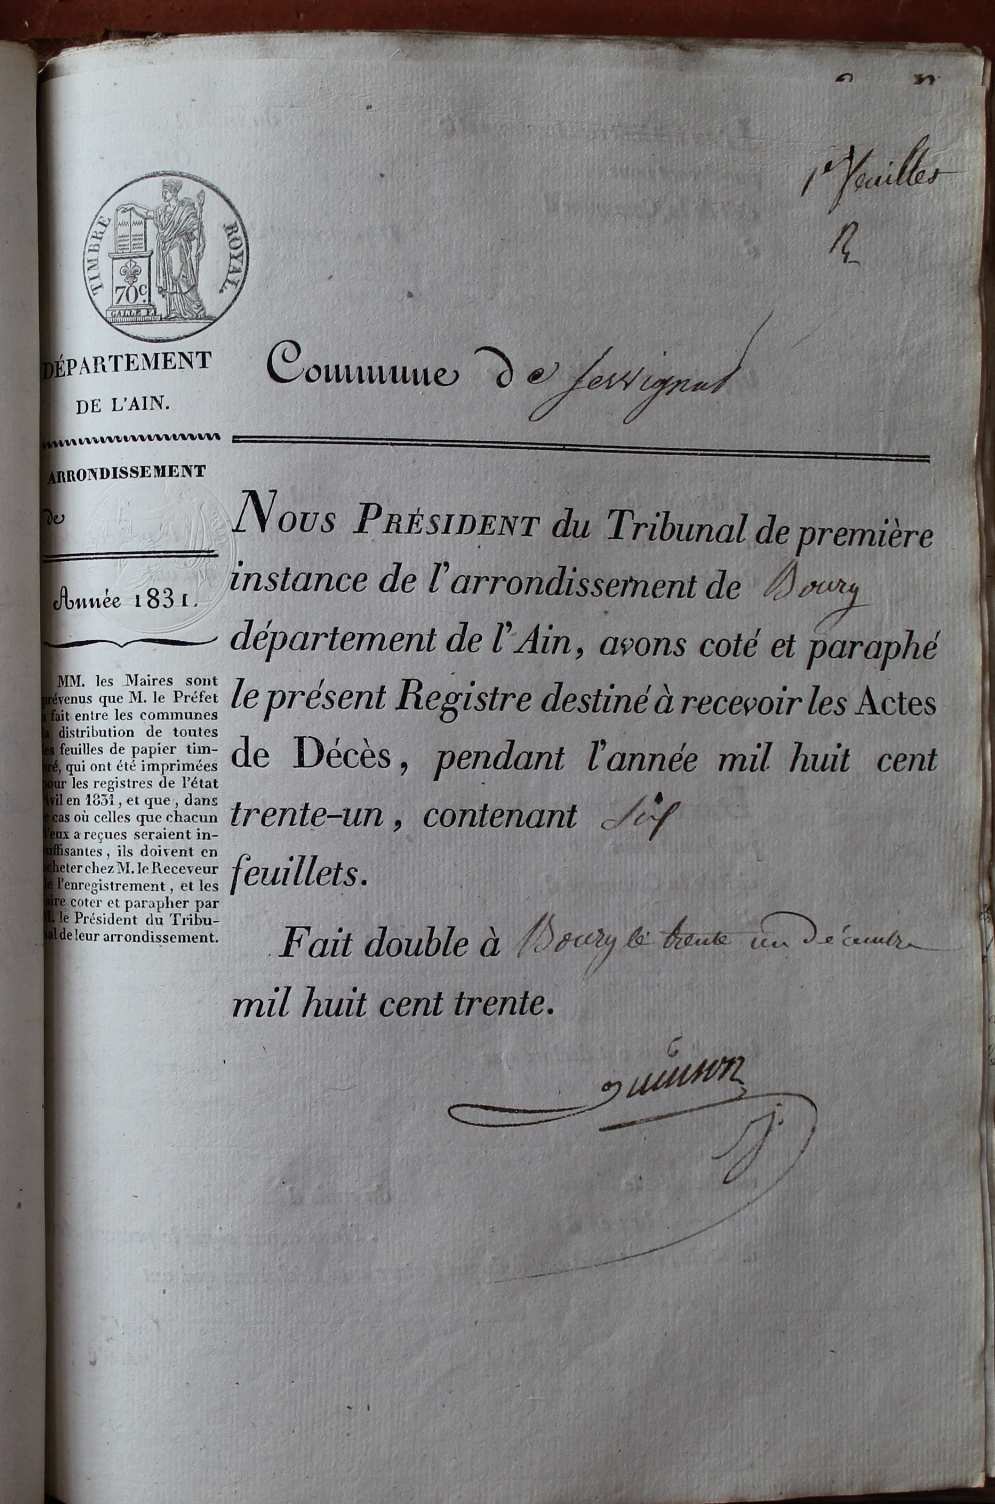 1er feuillet
TIMBRE ROYAL.
70c.
DÉPARTEMENT
DE L'AIN.
Commune de Servignat
ARRONDISSEMENT
de
Année 1831.
MM. les Maires sont
prévenus que M. le Préfet
a fait entre les communes
la distribution de toutes
les feuilles de papier tim-
bré, qui ont été imprimées
pour les registres de l'état
civil en 1831, et que, dans
le cas où celles que chacun
d'eux a reçues seraient in-
suffisantes, ils doivent en
acheter chez M. le Receveur
de l'enregistrement, et les
faire coter et parapher par
M. le Président du Tribu-
nal de leur arrondissement.
NOUS PRÉSIDENT du Tribunal de première
instance de l'arrondissement de Bourg
département de l'Ain, avons coté et paraphé
le présent Registre destiné à recevoir les Actes
de Décès, pendant l'année mil huit cent
trente-un, contenant six
feuillets.
Fait double à Bourg le trente un Décembre
mil huit cent trente.